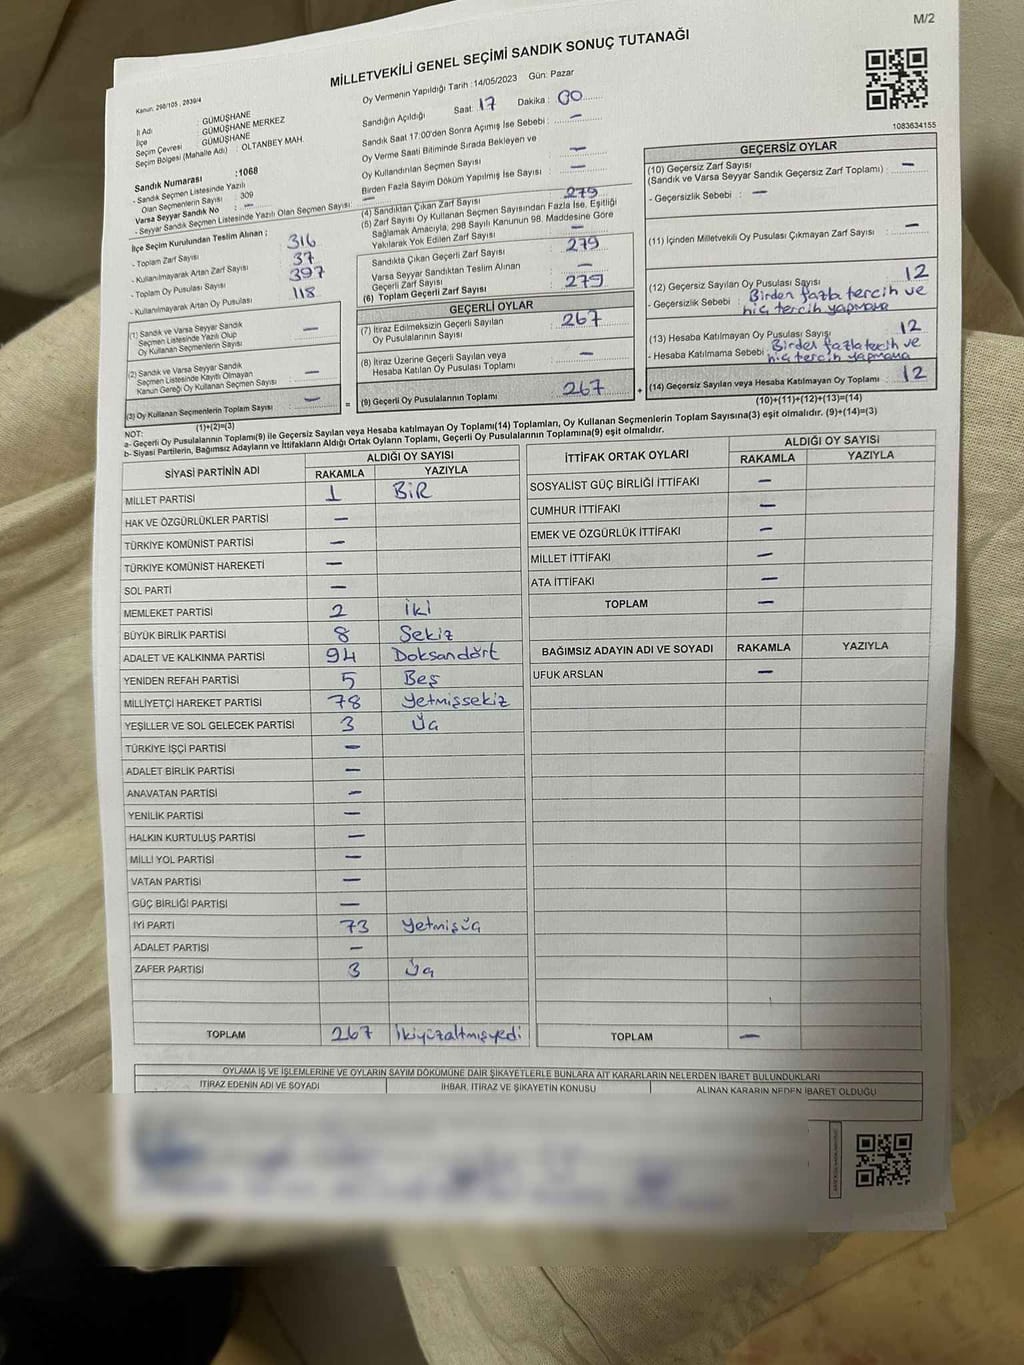 M/2
MİLLETVEKİLİ GENEL SEÇİMİ SANDIK SONUÇ TUTANAĞI
Kanun: 298/105, 2839/4
Oy Vermenin Yapıldığı Tarih : 14/05/2023 Gün: Pazar
İl Adı : GÜMÜŞHANE
İlçe : GÜMÜŞHANE MERKEZ
Seçim Çevresi : GÜMÜŞHANE
Seçim Bölgesi (Mahalle Adı) : OLTANBEY MAH.
Sandık Numarası :1068
- Sandık Seçmen Listesinde Yazılı
Olan Seçmenlerin Sayısı : 309
Varsa Seyyar Sandık No : —
- Seyyar Sandık Seçmen Listesinde Yazılı Olan Seçmen Sayısı : —
İlçe Seçim Kurulundan Teslim Alınan ;
- Toplam Zarf Sayısı 316
- Kullanılmayarak Artan Zarf Sayısı 37
- Toplam Oy Pusulası Sayısı 397
- Kullanılmayarak Artan Oy Pusulası 118
(1) Sandık ve Varsa Seyyar Sandık
Seçmen Listesinde Yazılı Olup
Oy Kullanan Seçmenlerin Sayısı —
(2) Sandık ve Varsa Seyyar Sandık
Seçmen Listesinde Kayıtlı Olmayan
Kanun Gereği Oy Kullanan Seçmen Sayısı —
(3) Oy Kullanan Seçmenlerin Toplam Sayısı —
(1)+(2)=(3)
Sandığın Açıldığı Saat: 17 Dakika : 00
Sandık Saat 17:00'den Sonra Açımış İse Sebebi : —
Oy Verme Saati Bitiminde Sırada Bekleyen ve
Oy Kullandırılan Seçmen Sayısı —
Birden Fazla Sayım Döküm Yapılmış İse Sayısı : —
(4) Sandıktan Çıkan Zarf Sayısı 279
(5) Zarf Sayısı Oy Kullanan Seçmen Sayısından Fazla İse, Eşitliği
Sağlamak Amacıyla, 298 Sayılı Kanunun 98. Maddesine Göre
Yakılarak Yok Edilen Zarf Sayısı —
Sandıkta Çıkan Geçerli Zarf Sayısı 279
Varsa Seyyar Sandıktan Teslim Alınan
Geçerli Zarf Sayısı —
(6) Toplam Geçerli Zarf Sayısı 279
GEÇERLİ OYLAR
(7) İtiraz Edilmeksizin Geçerli Sayılan
Oy Pusulalarının Sayısı 267
(8) İtiraz Üzerine Geçerli Sayılan veya
Hesaba Katılan Oy Pusulası Toplamı —
= (9) Geçerli Oy Pusulalarının Toplamı 267 +
1083634155
GEÇERSİZ OYLAR
(10) Geçersiz Zarf Sayısı
(Sandık ve Varsa Seyyar Sandık Geçersiz Zarf Toplamı) : —
- Geçersizlik Sebebi : —
(11) İçinden Milletvekili Oy Pusulası Çıkmayan Zarf Sayısı : —
(12) Geçersiz Sayılan Oy Pusulası Sayısı 12
- Geçersizlik Sebebi : Birden fazla tercih ve
hiç tercih yapmama
(13) Hesaba Katılmayan Oy Pusulası Sayısı 12
- Hesaba Katılmama Sebebi : Birden fazla tercih ve
hiç tercih yapmama
(14) Geçersiz Sayılan veya Hesaba Katılmayan Oy Toplamı : 12
(10)+(11)+(12)+(13)=(14)
NOT:
a- Geçerli Oy Pusulalarının Toplamı(9) ile Geçersiz Sayılan veya Hesaba katılmayan Oy Toplamı(14) Toplamları, Oy Kullanan Seçmenlerin Toplam Sayısına(3) eşit olmalıdır. (9)+(14)=(3)
b- Siyasi Partilerin, Bağımsız Adayların ve İttifakların Aldığı Ortak Oyların Toplamı, Geçerli Oy Pusulalarının Toplamına(9) eşit olmalıdır.
SİYASİ PARTİNİN ADI ALDIĞI OY SAYISI
RAKAMLA YAZIYLA
MİLLET PARTİSİ 1 BİR
HAK VE ÖZGÜRLÜKLER PARTİSİ —
TÜRKİYE KOMÜNİST PARTİSİ —
TÜRKİYE KOMÜNİST HAREKETİ —
SOL PARTİ —
MEMLEKET PARTİSİ 2 İki
BÜYÜK BİRLİK PARTİSİ 8 Sekiz
ADALET VE KALKINMA PARTİSİ 94 Doksandört
YENİDEN REFAH PARTİSİ 5 Beş
MİLLİYETÇİ HAREKET PARTİSİ 78 Yetmişsekiz
YEŞİLLER VE SOL GELECEK PARTİSİ 3 Üç
TÜRKİYE İŞÇİ PARTİSİ —
ADALET BİRLİK PARTİSİ —
ANAVATAN PARTİSİ —
YENİLİK PARTİSİ —
HALKIN KURTULUŞ PARTİSİ —
MİLLİ YOL PARTİSİ —
VATAN PARTİSİ —
GÜÇ BİRLİĞİ PARTİSİ —
İYİ PARTİ 73 Yetmişüç
ADALET PARTİSİ —
ZAFER PARTİSİ 3 Üç
TOPLAM 267 İkiyüzaltmışyedi
İTTİFAK ORTAK OYLARI ALDIĞI OY SAYISI
RAKAMLA YAZIYLA
SOSYALİST GÜÇ BİRLİĞİ İTTİFAKI —
CUMHUR İTTİFAKI —
EMEK VE ÖZGÜRLÜK İTTİFAKI —
MİLLET İTTİFAKI —
ATA İTTİFAKI —
TOPLAM —
BAĞIMSIZ ADAYIN ADI VE SOYADI RAKAMLA YAZIYLA
UFUK ARSLAN —
TOPLAM —
OYLAMA İŞ VE İŞLEMLERİNE VE OYLARIN SAYIM DÖKÜMÜNE DAİR ŞİKAYETLERLE BUNLARA AİT KARARLARIN NELERDEN İBARET BULUNDUKLARI
İTİRAZ EDENİN ADI VE SOYADI İHBAR, İTİRAZ VE ŞİKAYETİN KONUSU ALINAN KARARIN NEDEN İBARET OLDUĞU